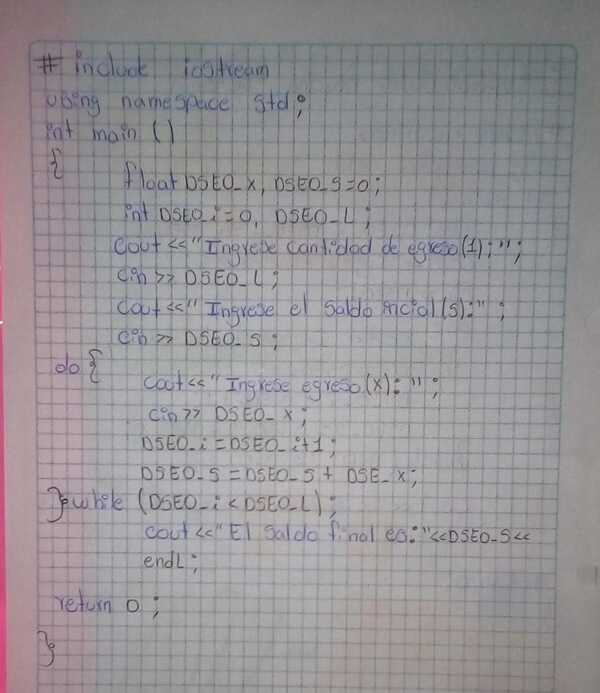 # include iostream
using namespace std;
int main ()
{
float DSEO_x, DSEO_S=0;
int DSEO_i=0, DSEO_L;
cout<<"Ingrese cantidad de egreso(1);";
cin>> DSEO_L;
cout<<"Ingrese el saldo incial(s):";
cin>> DSEO_S;
do{
cout<<"Ingrese egreso(x):";
cin>> DSEO_x;
DSEO_i=DSEO_i+1;
DSEO_S=DSEO_S+DSE_x;
}while (DSEO_i<DSEO_L);
cout<<"El saldo final es:"<<DSEO_S<<
endL;
return 0;
}